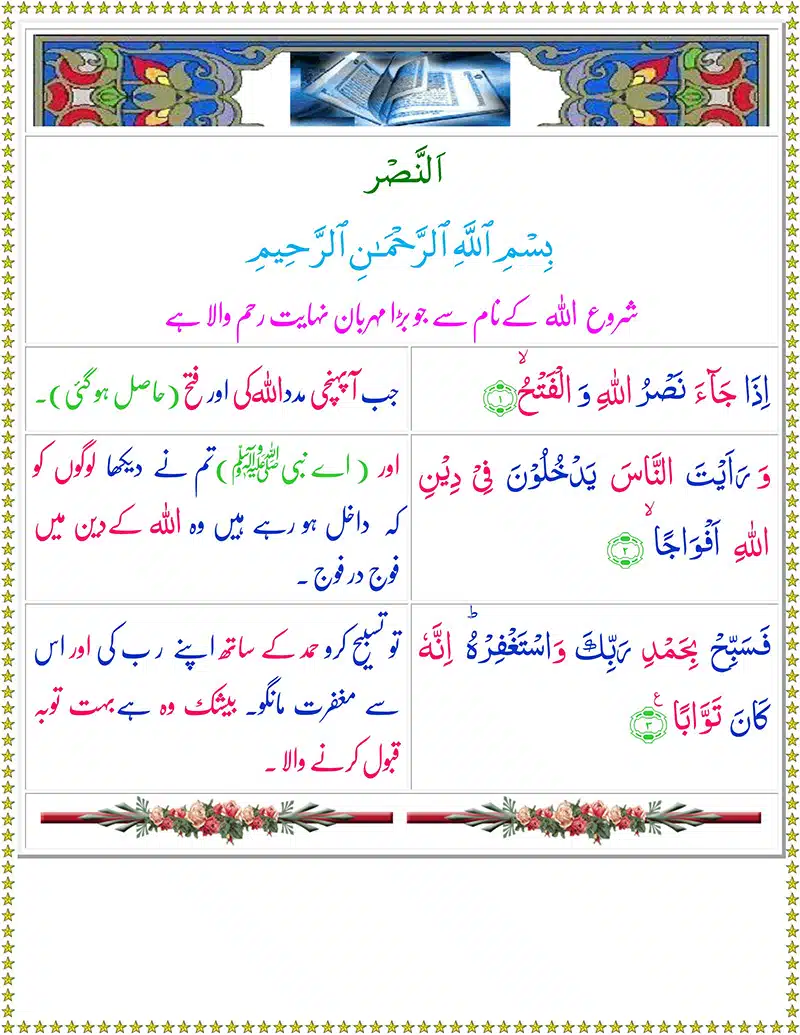 اَلنَّصْر
بِسْمِ ٱللَّهِ ٱلرَّحْمَـٰنِ ٱلرَّحِيمِ
شروع اللہ کے نام سے جو بڑا مہربان نہایت رحم والا ہے
اِذَا جَآءَ نَصْرُ اللّٰهِ وَ الْفَتْحُۙ ۝۱
جب آ پہنچی مدد اللہ کی اور فتح (حاصل ہو گئی)۔
وَ رَاَيْتَ النَّاسَ يَدْخُلُوْنَ فِيْ دِيْنِ
اللّٰهِ اَفْوَاجًاۙ ۝۲
اور (اے نبی ﷺ) تم نے دیکھا لوگوں کو
کہ داخل ہو رہے ہیں وہ اللہ کے دین میں
فوج در فوج ۔
فَسَبِّحْ بِحَمْدِ رَبِّكَ وَاسْتَغْفِرْهُؕ اِنَّهٗ
كَانَ تَوَّابًا ۝۳ ع
تو تسبیح کرو حمد کے ساتھ اپنے رب کی اور اس
سے مغفرت مانگو۔ بیشک وہ ہے بہت توبہ
قبول کرنے والا ۔